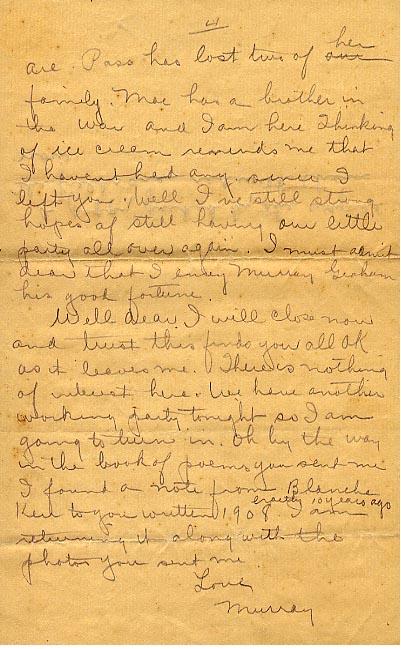 4
are. Pass has lost two of our her
family. Mae has a brother in
the war and I am here Thinking
of ice cream reminds me that
I havent had any since I
left you. Well I've still strong
hopes of still having our little
party all over again. I must admit
dear that I envy Murray Graham
his good fortune.
Well dear I will close now
and trust this finds you all OK
as it leaves me. There is nothing
of interest here. We have another
working party tonight so I am
going to turn in. Oh by the way
in the book of poems you sent me
I found a note from Blanche
exactly 10 years ago
Kerr to you written 1908 I am
returning it along with the
photos you sent me
Love
Murray